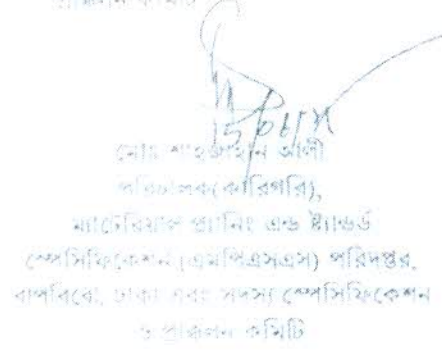 মোঃ শাহজাহান আলী
পরিচালক(কারিগরি),
ম্যাটেরিয়াল প্ল্যানিং এন্ড ষ্ট্যান্ডার্ড
স্পেসিফিকেশন (এমপিএসএস) পরিদপ্তর,
বাপবিবো, ঢাকা এবং সদস্য স্পেসিফিকেশন
ও প্রাক্কলন কমিটি